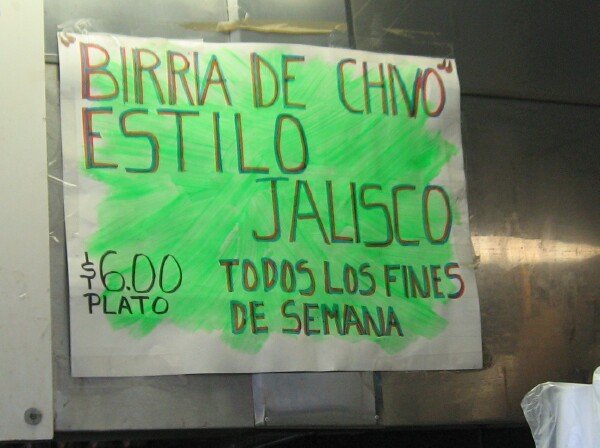 "BIRRIA DE CHIVO"
ESTILO
JALISCO
$6.00
PLATO
TODOS LOS FINES
DE SEMANA